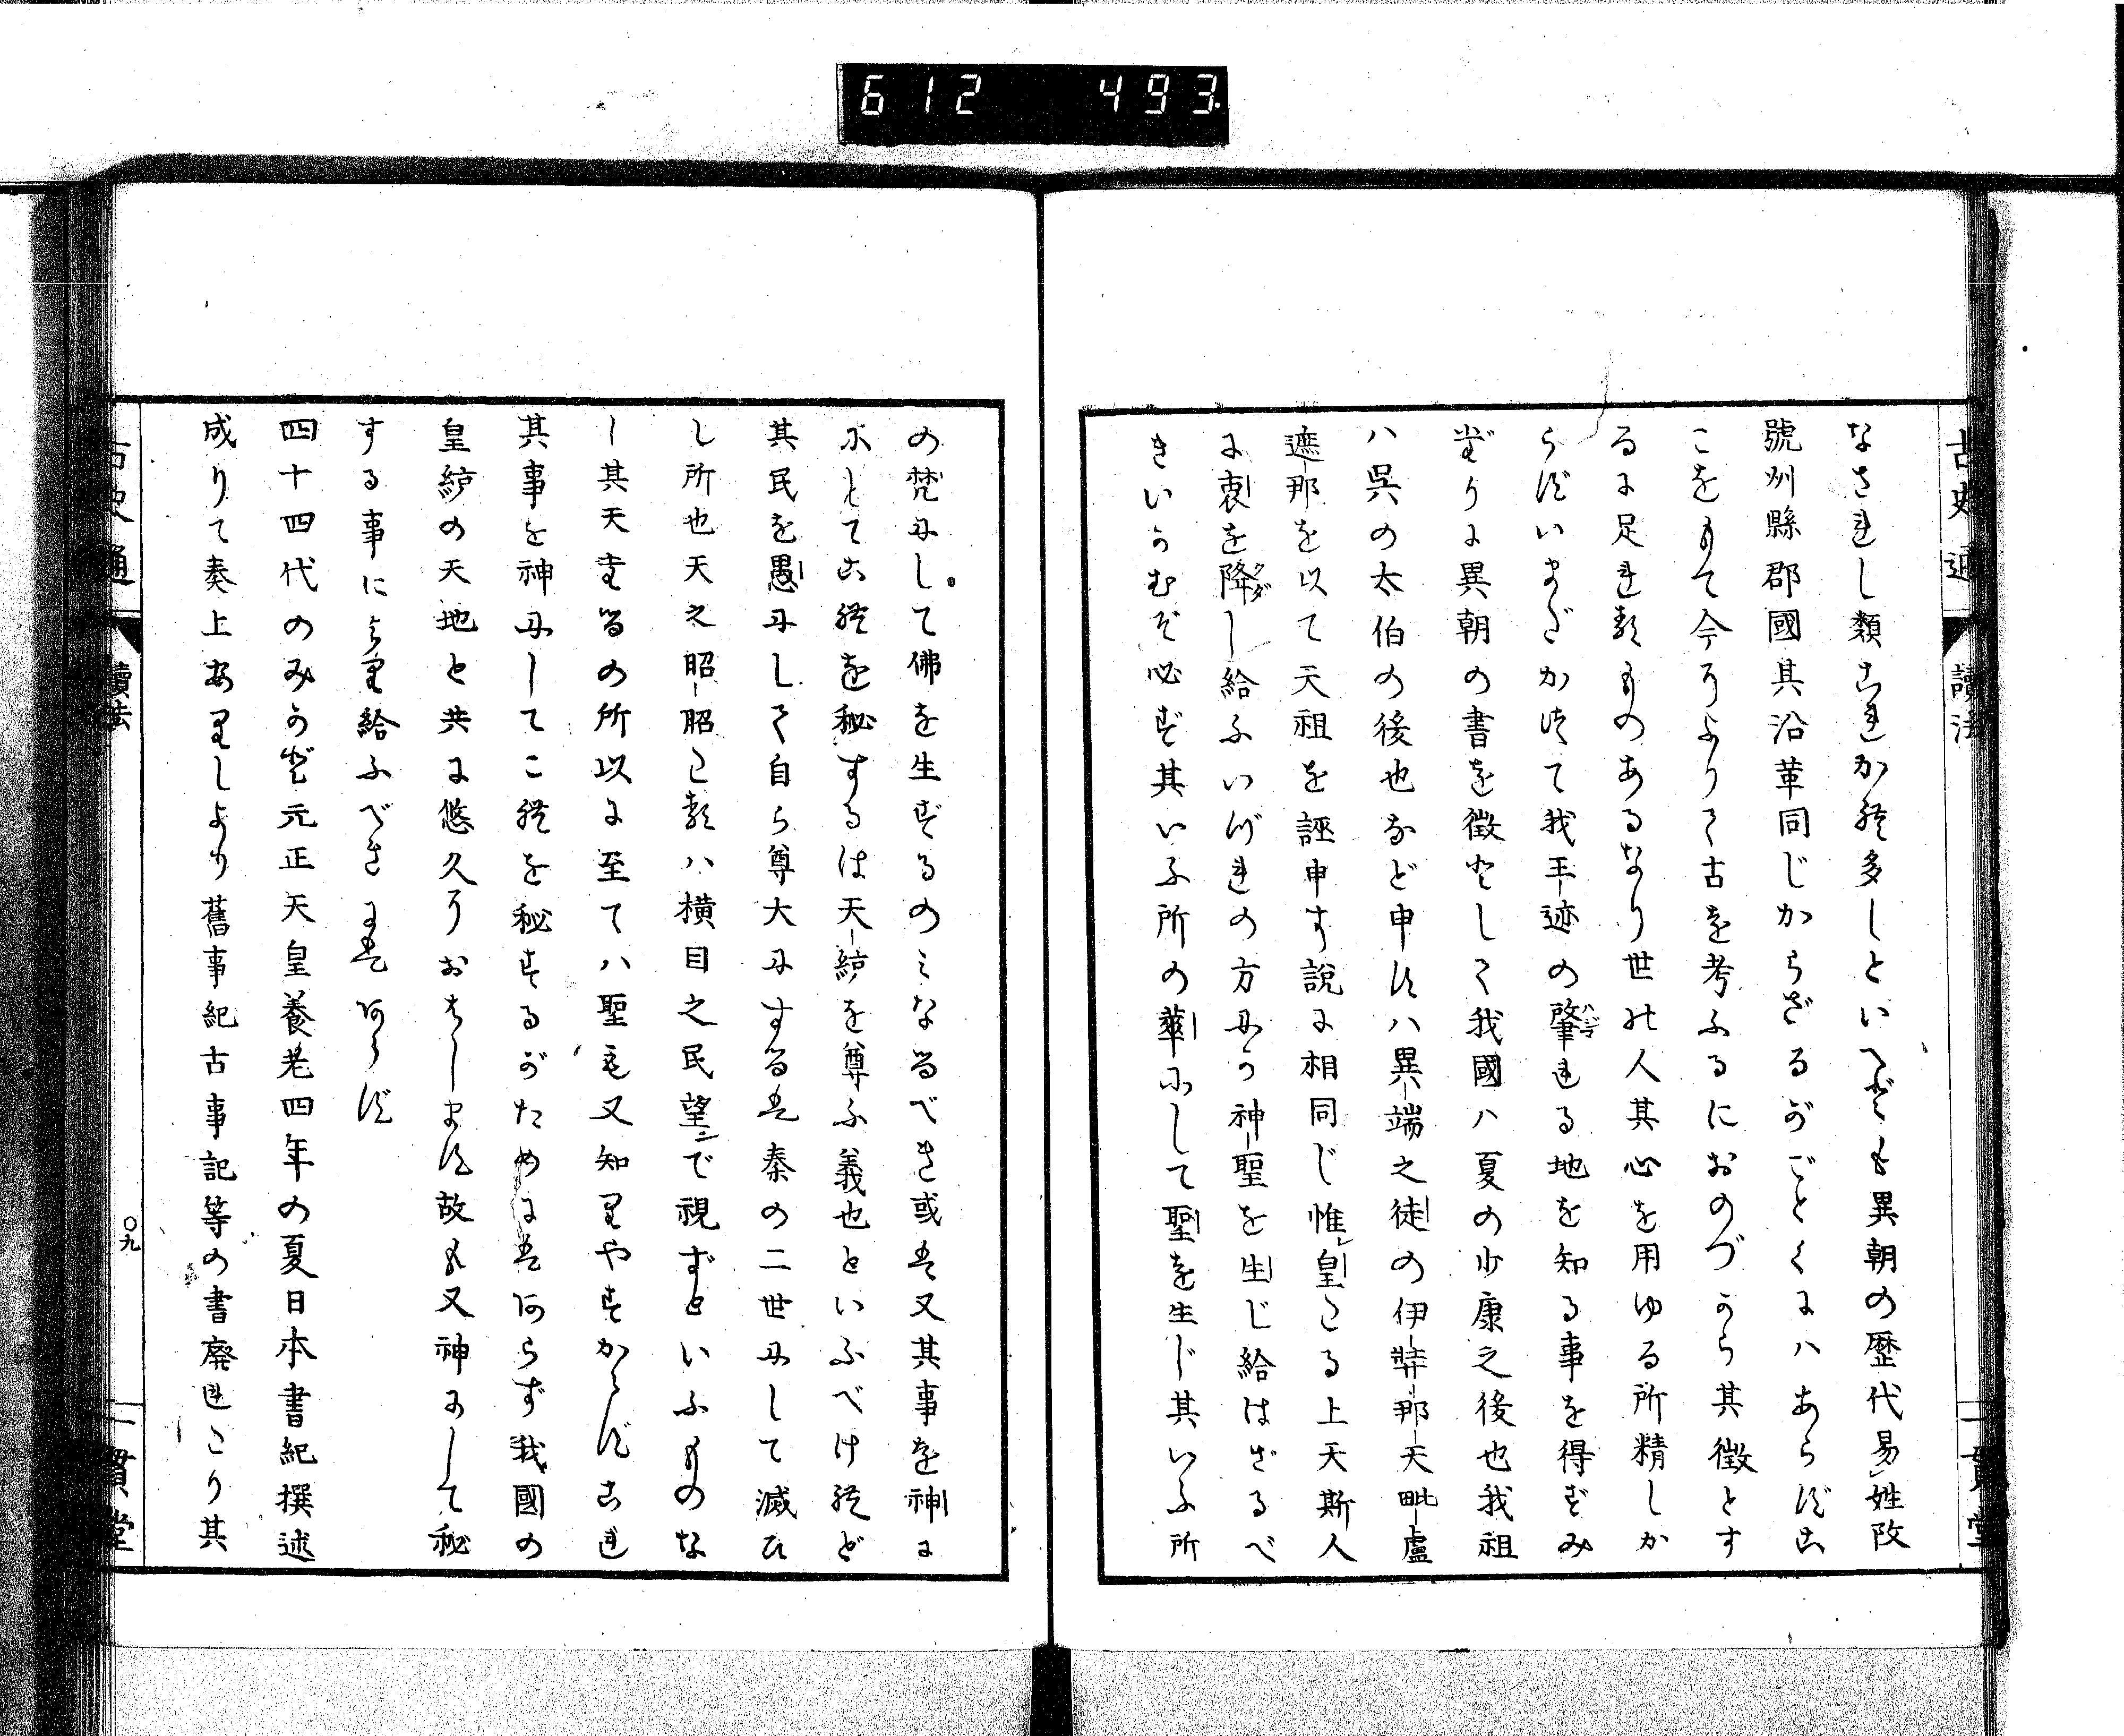 612 493
古史通
讀法
一貫堂
なされし類これかれ多しといへども異朝の歴代易姓改
號州縣郡國其沿革同じからざるがごとくにハあらずこ
こをもて今によりて古を考ふるにおのづから其徴とす
るに足れるものあるなり世の人其心を用ゆる所精しか
らずいまだかつて我王迹の肇れる地を知る事を得ずみ
だりに異朝の書を徴として我國ハ夏の少康之後也我祖
ハ呉の太伯の後也など申すハ異端之徒の伊弉那天毗盧
遮那を以て天祖を誣申す說に相同じ惟皇たる上天斯人
に衷を降し給ふいづれの方にか神聖を生じ給はざるべ
きいかむぞ必ず其いふ所の華にして聖を生じ其いふ所
の梵にして佛を生ずるのミなるべき或は又其事を神に
にとてこれを秘するは天統を尊ふ義也といふべけれど
其民を愚にして自ら尊大にするは秦の二世にして滅ひ
し所也天之昭昭たるハ橫目之民望ンで視ずといふものな
し其天たるの所以に至てハ聖も又知りやすからずこれ
其事を神にしてこれを秘するがためにはあらず我國の
皇統の天地と共に悠久におはします故も又神にして秘
する事により給ふべきにはあらず
四十四代のみかど元正天皇養老四年の夏日本書紀撰述
成りて奏上ありしより舊事紀古事記等の書廃れたり其
古史通
讀法
〇九
一貫堂